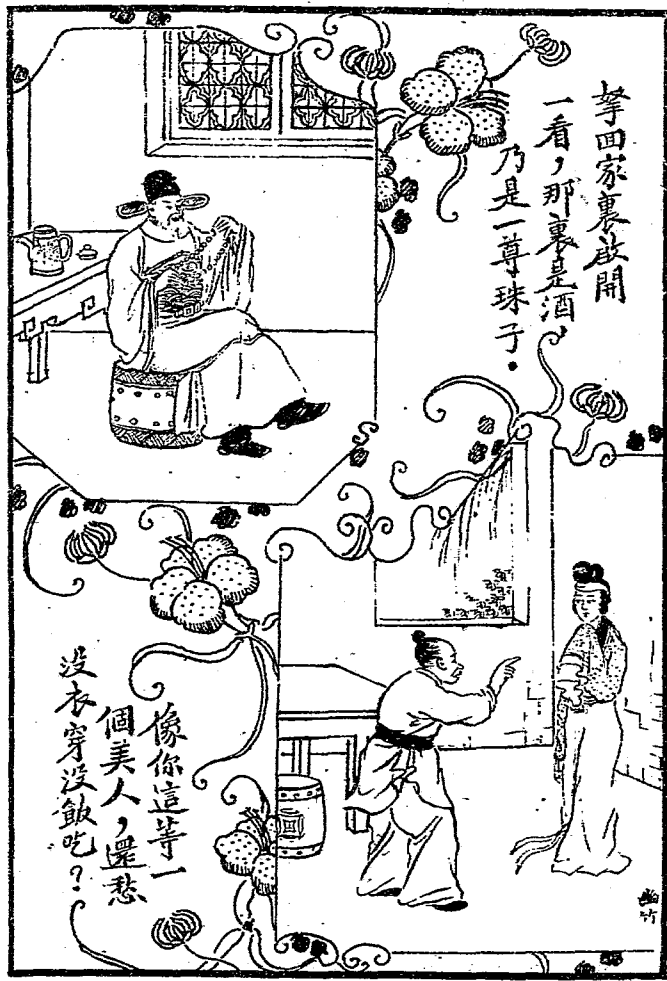 拏回家裏啟開
一看，那裏是酒，
乃是一尊珠子。
像你這等一
個美人，還愁
没衣穿没飯吃？
竹